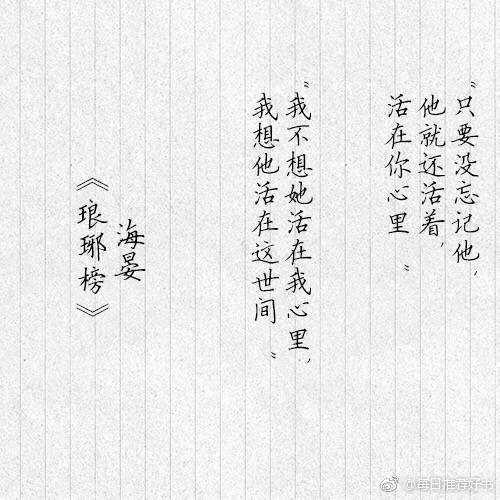 “只要没忘记他，
他就还活着，
活在你心里”
“我不想她活在我心里，
我想他活在这世间”
海晏
《琅琊榜》
@每日推荐好书